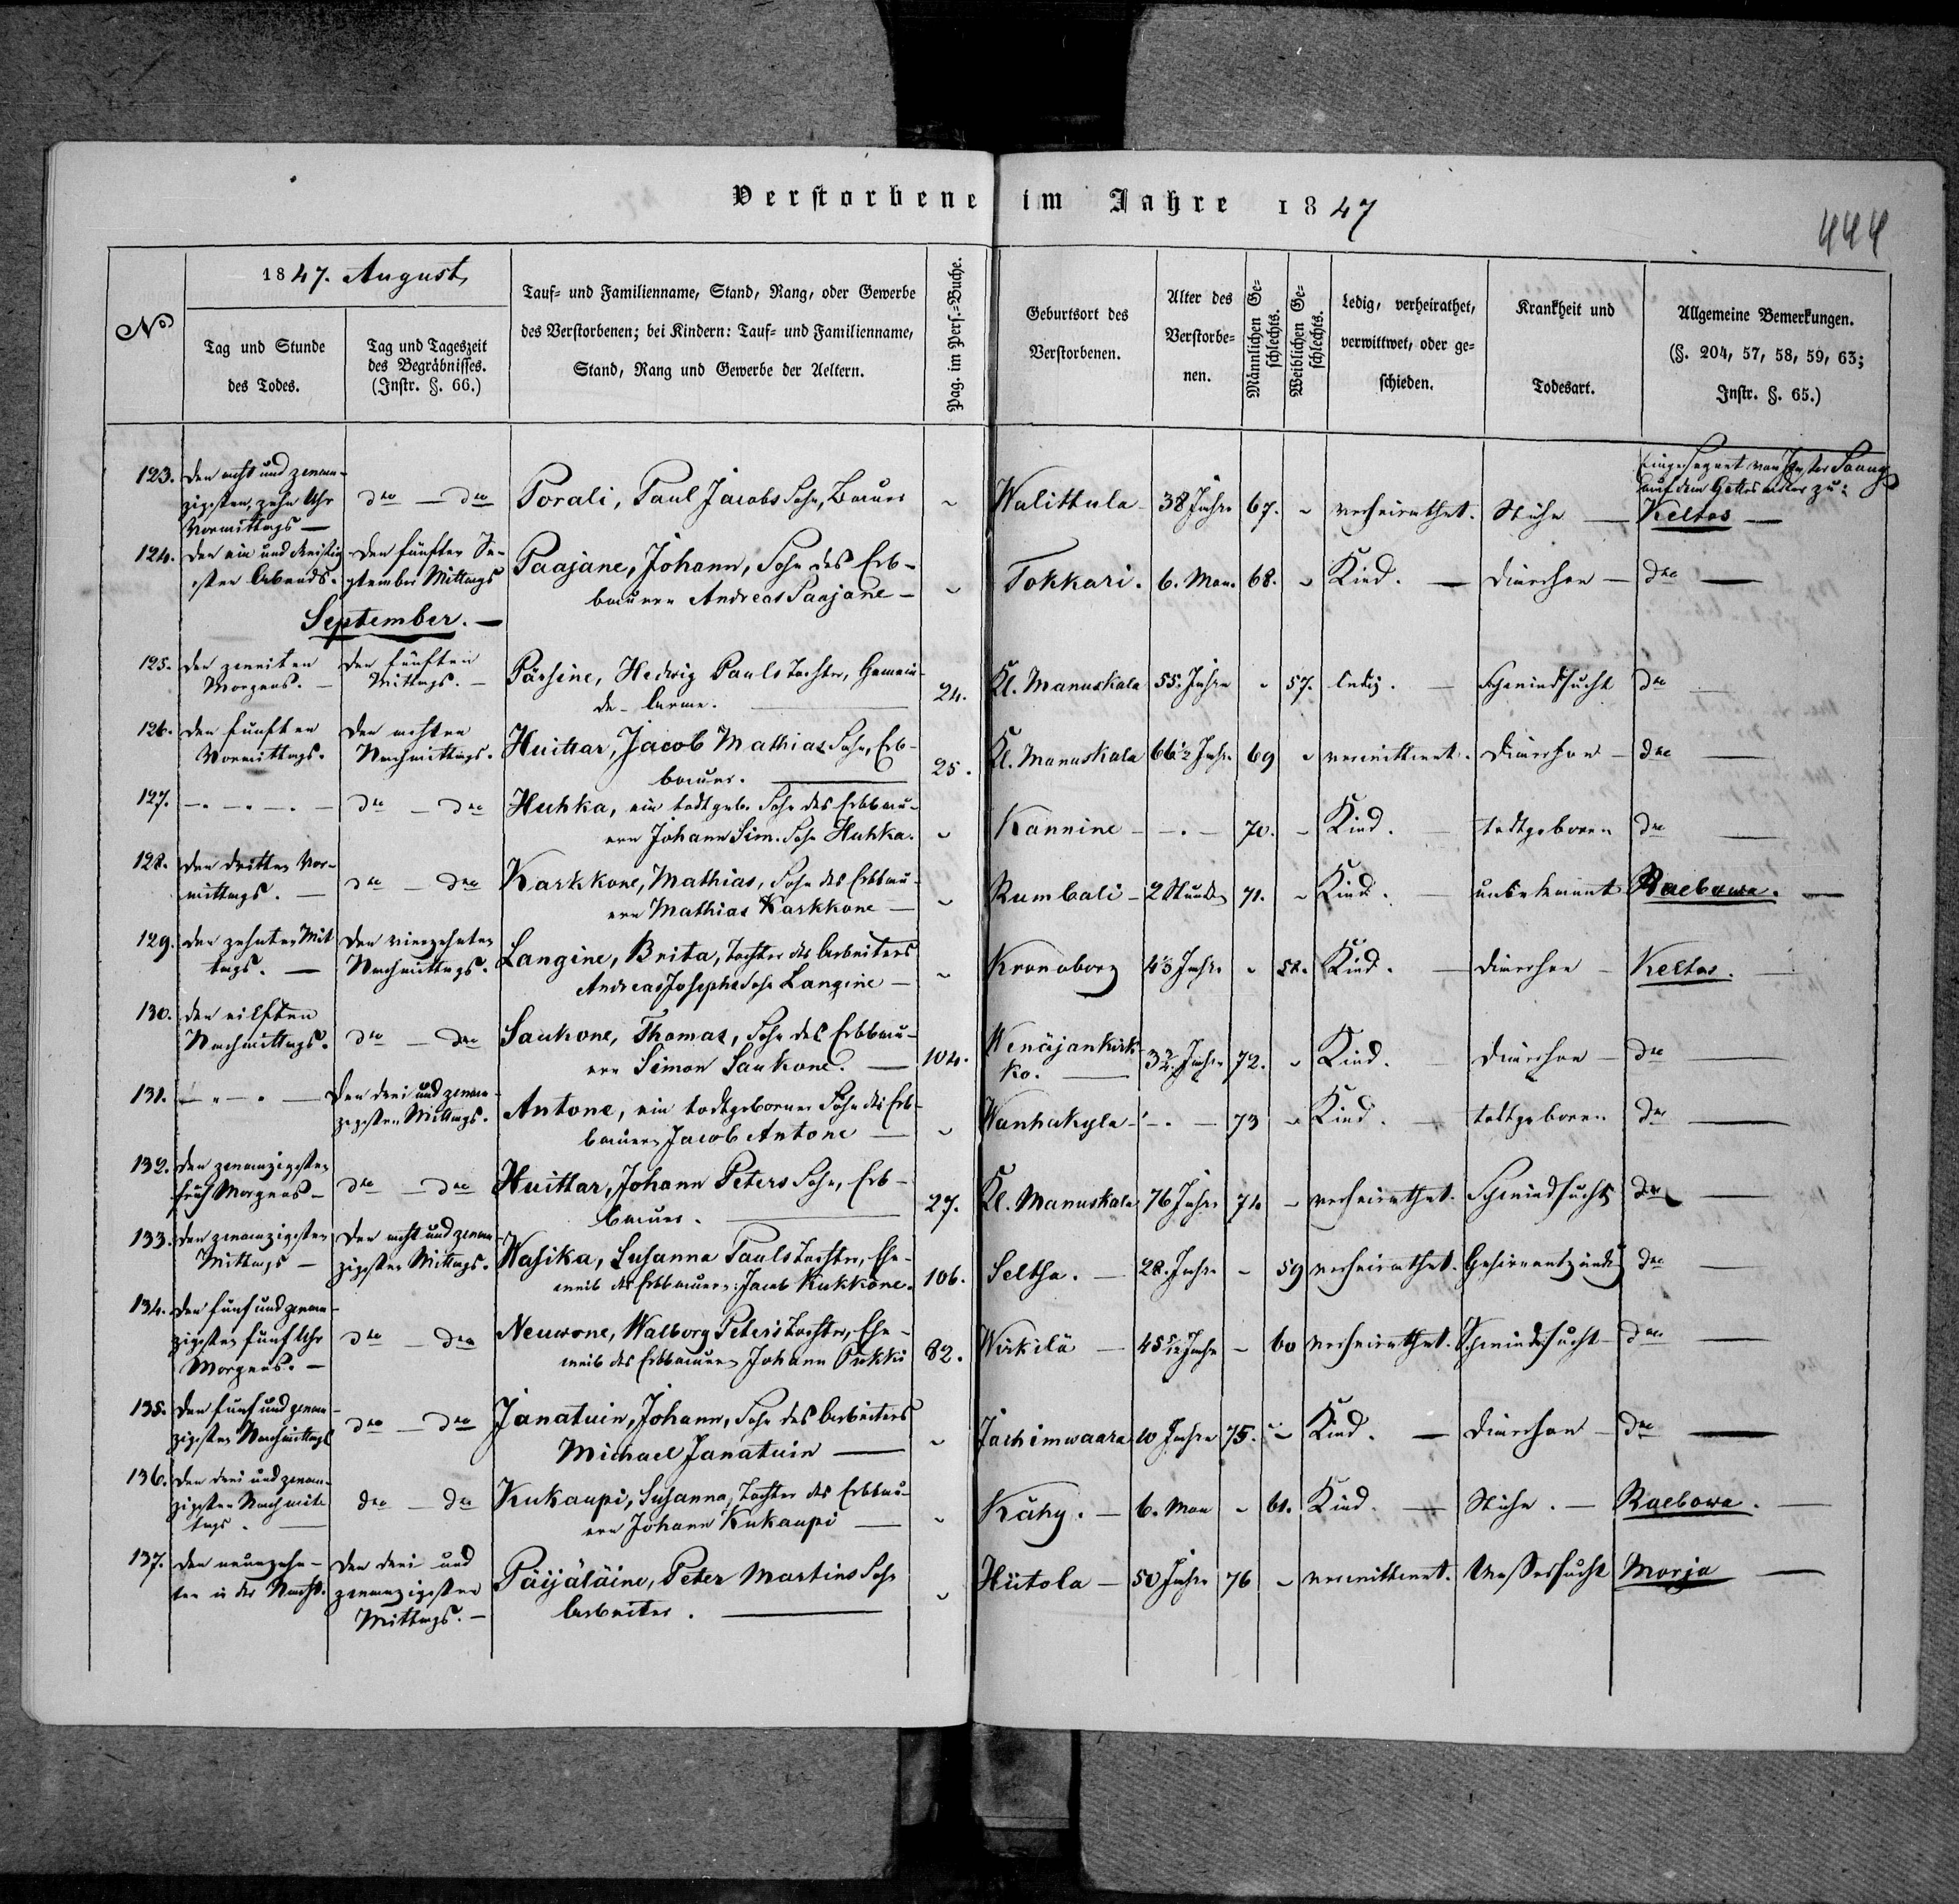 Verstorbene im Jahre 1847
444
No
1847. August
Tag und Stunde
des Todes.
Tag und Tageszeit
des Begräbnisses.
(Instr. §. 66.)
Tauf- und Familienname, Stand, Rang, oder Gewerbe
des Verstorbenen; bei Kindern: Tauf- und Familienname,
Stand, Rang und Gewerbe der Aeltern.
Pag. im Pers.-Buche.
Geburtsort des
Verstorbenen.
Alter des
Verstorbe-
nen.
Männlichen Ge-
schlechts.
Weiblichen Ge-
schlechts.
Ledig, verheirathet,
verwittwet, oder ge-
schieden.
Krankheit und
Todesart.
Allgemeine Bemerkungen.
(§. 204, 57, 58, 59, 63;
Instr. §. 65.)
123. den acht und zwan-
zigsten, zehn Uhr
Vormittags —
dto — dto
Porali, Paul Jacobs Sohn, Bauer
Walittula 38 Jahre 67. verheirathet.
Eingesegnet von Pastor
auf dem Gottesacker zu:
Keltos —
124. den ein und dreißig-
sten Abends. den fünften Se-
ptember Mittags
Paajane, Johann, Sohn des Erb-
bauern Andreas Paajane —
Tokkari. 6. Mon. 68. Kind. — Diarrhoe — dto —
September. —
125. den zweiten
Morgens. — den fünften
Mittags. —
Pärsine, Hedwig Pauls Tochter, Gemein-
de-Arme. 24.
Kl. Manuskala 55. Jahre 57. ledig. — Schwindsucht dto —
126. den fünften
Vormittags. den achten
Nachmittags.
Huittar, Jacob Mathias Sohn, Erb-
bauer. 25.
Kl. Manuskala 66½ Jahre 69 verwittwet. Diarrhoe — dto —
127. dto — dto
Huhka, ein todtgeb. Sohn des Erbbau-
ern Johann Sim. Sohn Huhka.
Kannine 70. Kind. todtgeboren dto —
128. den dritten Vor-
mittags. — dto — dto
Karkkone, Mathias, Sohn des Erbbau-
ern Mathias Karkkone —
Rumbali — 2 Stunden 71. Kind. unbekannt Raebowa. —
129. den zehnten Mit-
tags. — den vierzehnten
Nachmittags.
Langine, Brita, Tochter des Arbeiters
Andreas Josephs Sohn Langine —
Kronoborg Jahre 58. Kind. — Diarrhoe — Keltos.
130. den eilften
Nachmittags. dto — dto
Saukone, Thomas, Sohn des Erbbau-
ern Simon Saukone. — 104.
Wenäjankirk-
ko. — Jahre 72. Kind. Diarrhoe — dto —
131. den drei und zwan-
zigsten Mittags.
Antone, ein todtgeborner Sohn des Erb-
bauern Jacob Antone —
Wanhakyla 73 Kind. — todtgeboren dto —
132. den zwanzigsten
früh Morgens — dto — dto
Huittar, Johann Peters Sohn, Erb-
bauer. 27.
Kl. Manuskala 76 Jahre 74 verheirathet. Schwindsucht dto —
133. den zwanzigsten
Mittags — den acht und zwan-
zigsten Mittags.
Wasika, Susanna Pauls Tochter, Ehe-
weib des Erbbauern: Jacob Kukkone. 106.
Seltsa. — 28. Jahre — 59 verheirathet. Gehirnentzünd. dto —
134. den fünf und zwan-
zigsten fünf Uhr
Morgens. — dto — dto
Neuwone, Walborg Peters Tochter, Ehe-
weib des Erbbauern Johann Pukki 82.
Wirkilä — Jahre — 60 verheirathet. Schwindsucht — dto —
135. den fünf und zwan-
zigsten Nachmittags dto — dto
Janatuin, Johann, Sohn des Arbeiters
Michael Janatuin —
Jachimwaara 10 Jahre 75. Kind. — Diarrhoe — dto —
136. den drei und zwan-
zigsten Nachmit-
tags. — dto — dto
Kukaupi, Susanna, Tochter des Erbbau-
ern Johann Kukaupi —
Kähy. — 6. Mon — 61. Kind. — Raebowa. —
137. den neunzehn-
ten in der Nacht. den drei und
zwanzigsten
Mittags. —
Päijäläine, Peter Martins Sohn
Arbeiter.
Hiitola — 50 Jahre 76 verwittwet. Wassersucht Morja —